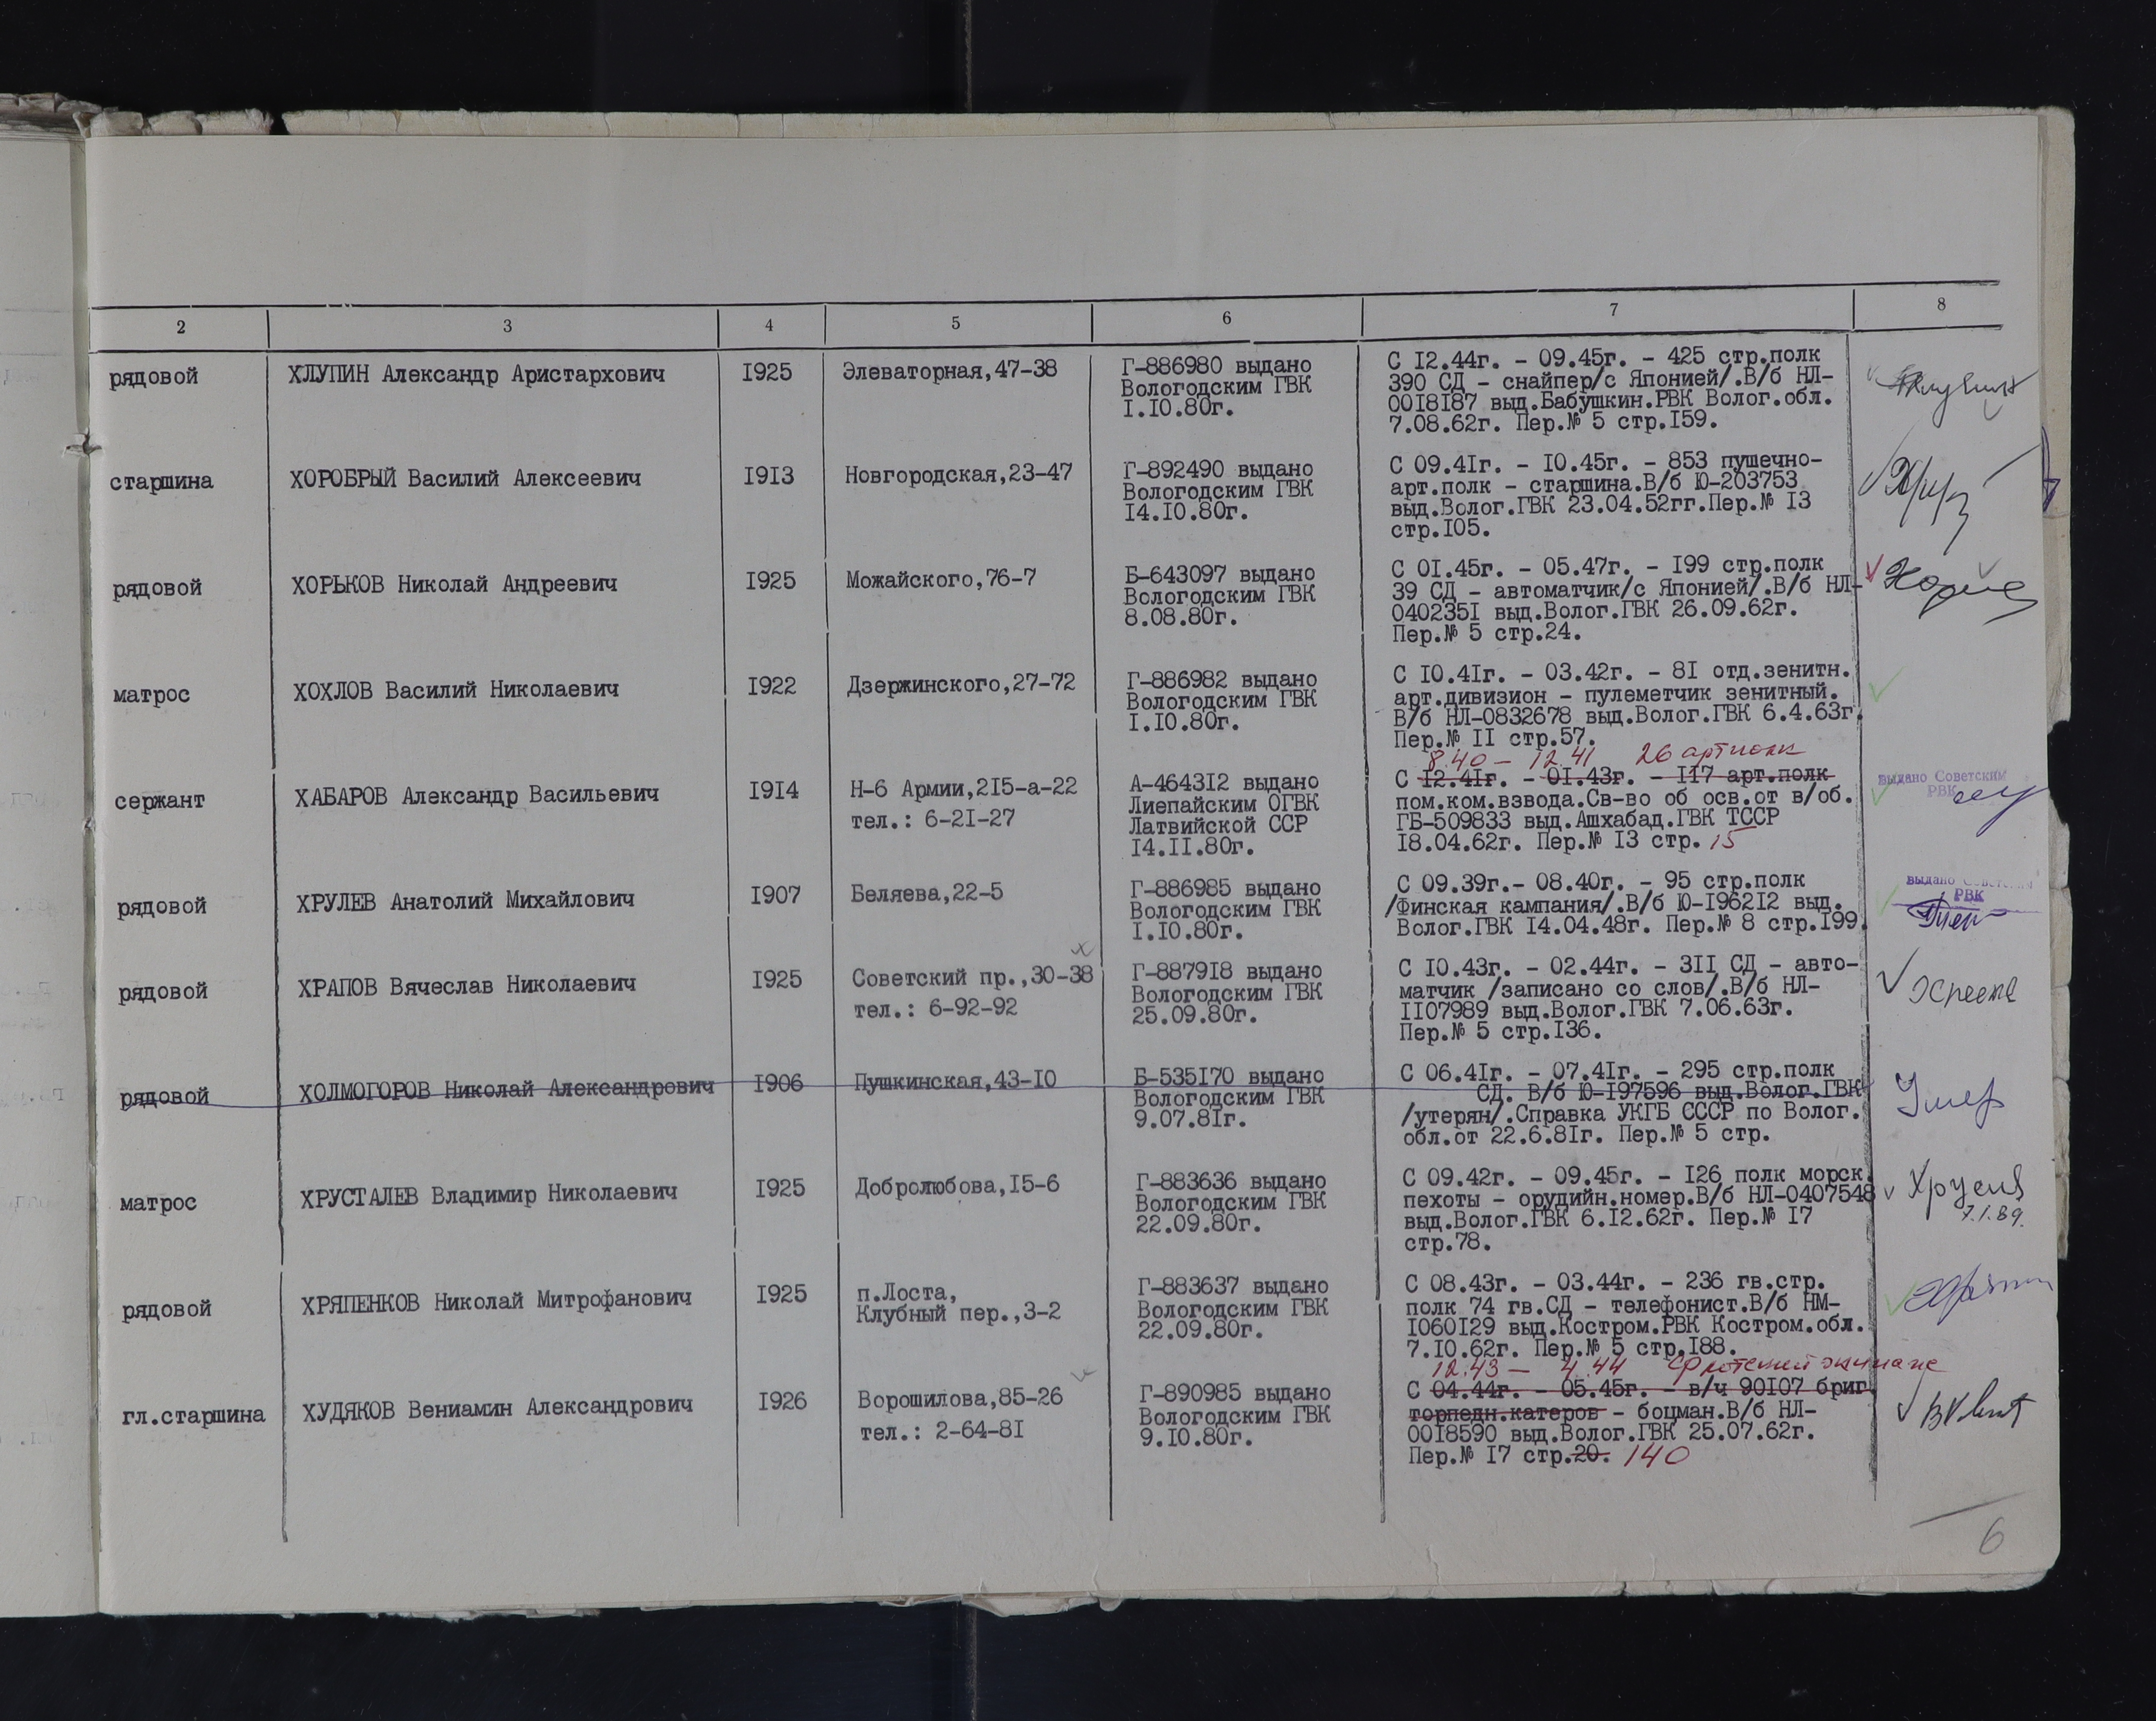 2 3 4 5 6 7 8
рядовой ХЛУПИН Александр Аристархович I925 Элеваторная,47-38
Г-886980 выдано
Вологодским ГВК
I.I0.80г.
С I2.44г. - 09.45г. - 425 стр.полк
390 СД - снайпер/с Японией/.В/б НЛ-
00I8I87 выд.Бабушкин.РВК Волог.обл.
7.08.62г. Пер.№ 5 стр.I59.
старшина ХОРОБРЫЙ Василий Алексеевич I9I3 Новгородская,23-47
Г-892490 выдано
Вологодским ГВК
I4.I0.80г.
С 09.4Iг. - I0.45г. - 853 пушечно-
арт.полк - старшина.В/б Ю-203753
выд.Волог.ГВК 23.04.52гг.Пер.№ I3
стр.I05.
рядовой ХОРЬКОВ Николай Андреевич I925 Можайского,76-7
Б-643097 выдано
Вологодским ГВК
8.08.80г.
С 0I.45г. - 05.47г. - I99 стр.полк
39 СД - автоматчик/с Японией/.В/б НЛ-
040235I выд.Волог.ГВК 26.09.62г.
Пер.№ 5 стр.24.
матрос ХОХЛОВ Василий Николаевич I922 Дзержинского,27-72
Г-886982 выдано
Вологодским ГВК
I.I0.80г.
С I0.4Iг. - 03.42г. - 8I отд.зенитн.
арт.дивизион - пулеметчик зенитный.
В/б НЛ-0832678 выд.Волог.ГВК 6.4.63г.
Пер.№ II стр.57.
сержант ХАБАРОВ Александр Васильевич I9I4 Н-6 Армии,2I5-а-22
тел.: 6-2I-27
А-4643I2 выдано
Лиепайским ОГВК
Латвийской ССР
I4.II.80г.
8.40 - 12.41 26 артполк
С I2.4Iг. - 0I.43г. - II7 арт.полк
пом.ком.взвода.Св-во об осв.от в/об.
ГБ-509833 выд.Ашхабад.ГВК ТССР
I8.04.62г. Пер.№ I3 стр. 15
выдано Советским
РВК
рядовой ХРУЛЕВ Анатолий Михайлович I907 Беляева,22-5
Г-886985 выдано
Вологодским ГВК
I.I0.80г.
С 09.39г.- 08.40г. - 95 стр.полк
/Финская кампания/.В/б Ю-I962I2 выд.
Волог.ГВК I4.04.48г. Пер.№ 8 стр.I99.
выдано Советским
РВК
рядовой ХРАПОВ Вячеслав Николаевич I925 Советский пр.,30-38
тел.: 6-92-92
Г-8879I8 выдано
Вологодским ГВК
25.09.80г.
С I0.43г. - 02.44г. - 3II СД - авто-
матчик /записано со слов/.В/б НЛ-
II07989 выд.Волог.ГВК 7.06.63г.
Пер.№ 5 стр.I36.
рядовой ХОЛМОГОРОВ Николай Александрович I906 Пушкинская,43-I0
Б-535I70 выдано
Вологодским ГВК
9.07.8Iг.
С 06.4Iг. - 07.4Iг. - 295 стр.полк
СД. В/б Ю-I97596 выд.Волог.ГВК
/утерян/.Справка УКГБ СССР по Волог.
обл.от 22.6.8Iг. Пер.№ 5 стр.
Умер
матрос ХРУСТАЛЕВ Владимир Николаевич I925 Добролюбова,I5-6
Г-883636 выдано
Вологодским ГВК
22.09.80г.
С 09.42г. - 09.45г. - I26 полк морск.
пехоты - орудийн.номер.В/б НЛ-0407548
выд.Волог.ГВК 6.I2.62г. Пер.№ I7
стр.78.
7.1.89.
рядовой ХРЯПЕНКОВ Николай Митрофанович I925 п.Лоста,
Клубный пер.,3-2
Г-883637 выдано
Вологодским ГВК
22.09.80г.
С 08.43г. - 03.44г. - 236 гв.стр.
полк 74 гв.СД - телефонист.В/б НМ-
I060I29 выд.Костром.РВК Костром.обл.
7.I0.62г. Пер.№ 5 стр.I88.
гл.старшина ХУДЯКОВ Вениамин Александрович I926 Ворошилова,85-26
тел.: 2-64-8I
Г-890985 выдано
Вологодским ГВК
9.I0.80г.
12.43 - 4.44
С 04.44г. - 05.45г. - в/ч 90I07 бриг.
торпедн.катеров - боцман.В/б НЛ-
00I8590 выд.Волог.ГВК 25.07.62г.
Пер.№ I7 стр.20. 140
6